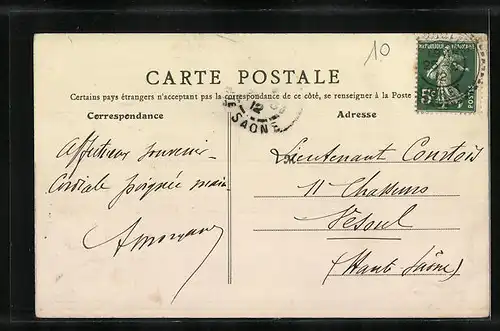 10
REPUBLIQUE FRANÇAISE
5c
POSTES
CARTE POSTALE
Certains pays étrangers n'acceptant pas la correspondance de ce côté, se renseigner à la Poste
Correspondance
Adresse
12
SAONE
Affectueux souvenir
Cordiale poignée main
Lieutenant Courtois
11 Chasseurs
Vesoul
(Haute Saône)